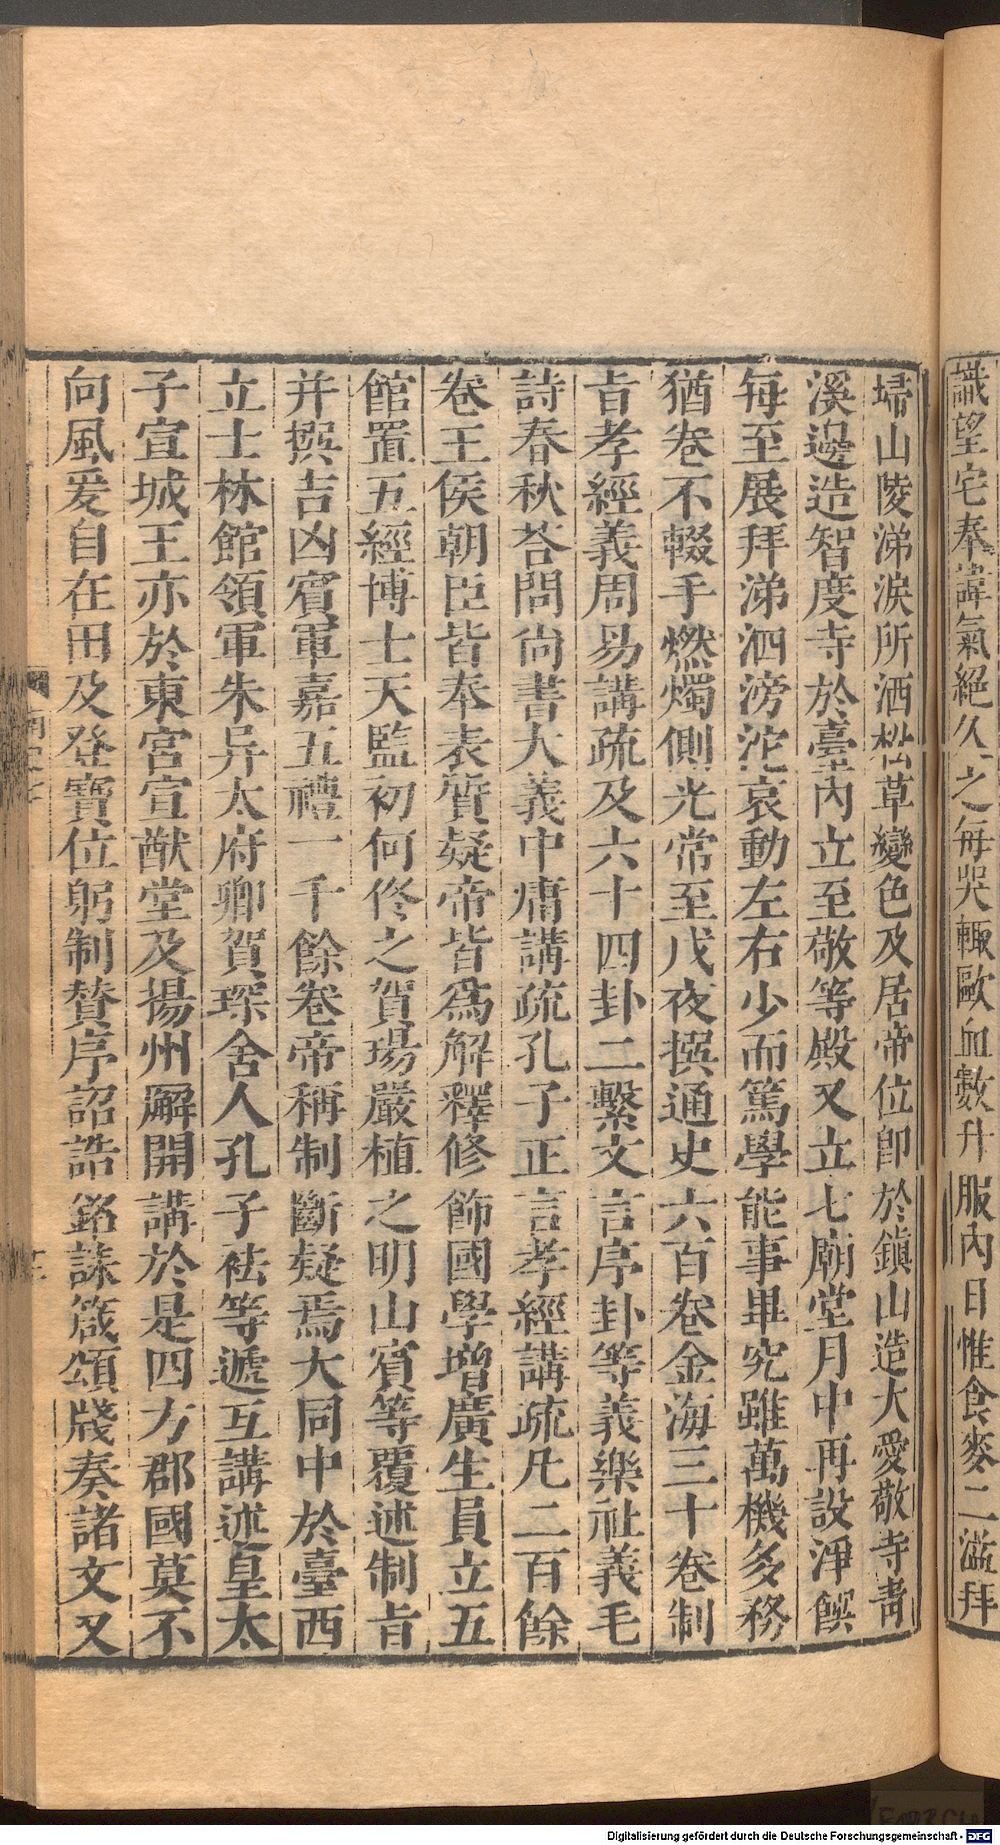 識望宅奉諱氣絕久之每哭輒歐血數升服內日惟食麥二溢拜
埽山陵涕淚所洒松草變色及居帝位卽於鎭山造大愛敬寺靑
溪邊造智度寺於臺內立至敬等殿又立七廟堂月中再設淨饌
每至展拜涕泗滂沱哀動左右少而篤學能事畢究雖萬機多務
猶卷不輟手燃燭側光常至戊夜撰通史六百卷金海三十卷制
旨孝經義周易講疏及六十四卦二繫文言序卦等義樂社義毛
詩春秋荅問尙書大義中庸講疏孔子正言孝經講疏凡二百餘
卷王侯朝臣皆奉表質疑帝皆爲解釋修飾國學增廣生員立五
館置五經博士天監初何佟之賀瑒嚴植之明山賓等覆述制旨
并撰吉凶賓軍嘉五禮一千餘卷帝稱制斷疑焉大同中於臺西
立士林館領軍朱异太府卿賀琛舍人孔子袪等遞互講述皇太
子宣城王亦於東宮宣猷堂及揚州廨開講於是四方郡國莫不
向風爰自在田及登寶位躬制贊序詔誥銘誄箴頌牋奏諸文又
Digitalisierung gefördert durch die Deutsche Forschungsgemeinschaft - DFG